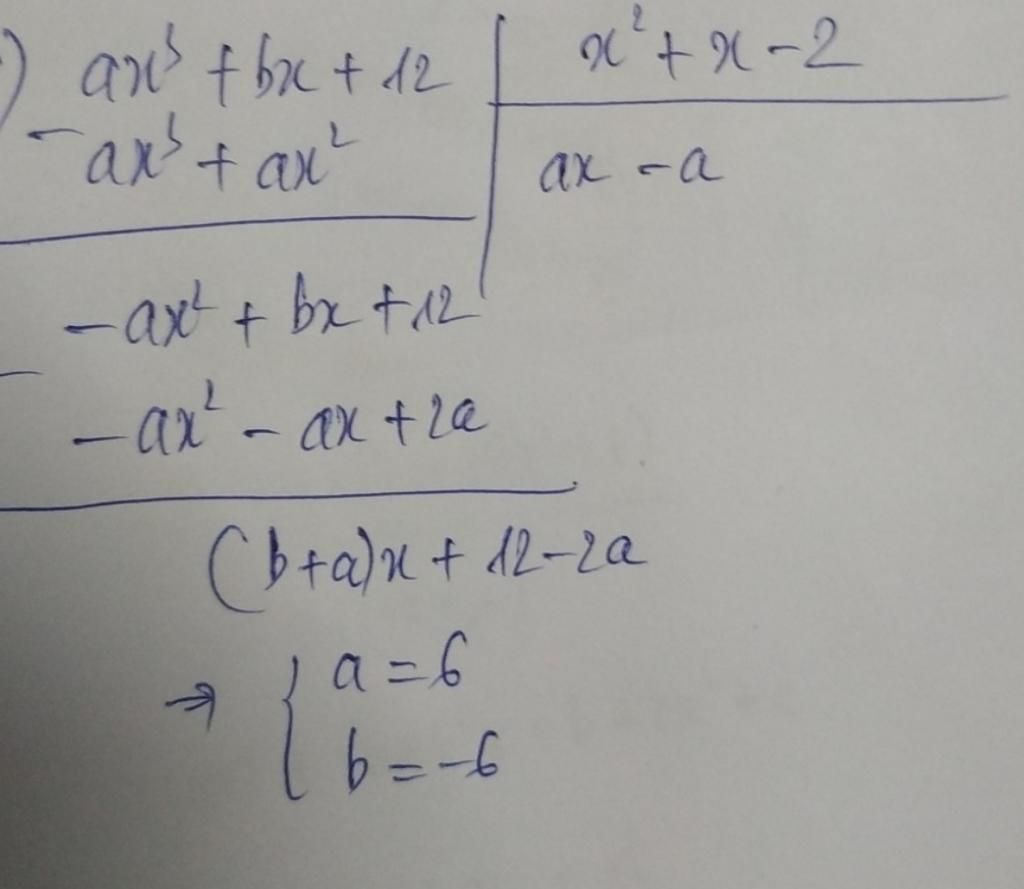 ) ax³ + bx + 12 | x² + x - 2
- ax³ + ax² | ax - a
-ax² + bx + 12
-
-ax² - ax + 2a
(b+a)x + 12-2a
⇒ { a = 6
b = -6